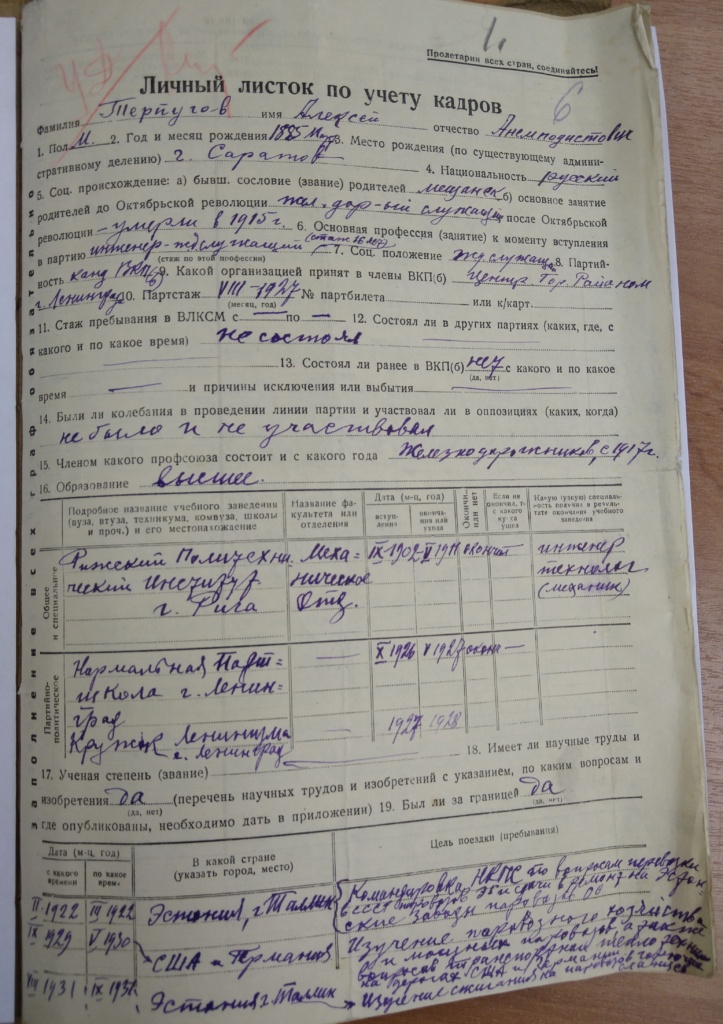 1.
Пролетарии всех стран, соединяйтесь!
6
Личный листок по учету кадров
Фамилия Терпугов имя Алексей отчество Анемподистович
1. Пол М. 2. Год и месяц рождения 1885 3. Место рождения (по существующему админи-
стративному делению) г. Саратов 4. Национальность русский
5. Соц. происхождение: а) бывш. сословие (звание) родителей мещанск б) основное занятие
родителей до Октябрьской революции жел.дор-ый служащий после Октябрьской
революции — умерли в 1915 г. 6. Основная профессия (занятие) к моменту вступления
в партию инженер-жд служащий (стаж 16 лет) 7. Соц. положение жд. служащий 8. Партий-
(стаж по этой профессии)
ность канд ВКП(б) 9. Какой организацией принят в члены ВКП(б) Центр. Гор. Райком
г. Ленинград 10. Партстаж VIII — 1927 № партбилета или к/карт.
(месяц, год)
11. Стаж пребывания в ВЛКСМ с — по — 12. Состоял ли в других партиях (каких, где, с
какого и по какое время) не состоял
13. Состоял ли ранее в ВКП(б) нет с какого и по какое
(да, нет)
время — и причины исключения или выбытия —
14. Были ли колебания в проведении линии партии и участвовал ли в оппозициях (каких, когда)
не было и не участвовал
15. Членом какого профсоюза состоит и с какого года Железнодорожников, с 1917 г.
16. Образование высшее.
заполнение всех граф обязательно
Подробное название учебного заведения (вуза, втуза, техникума, комвуза, школы и проч.) и его местонахождение
Название факультета или отделения
Дата (м-ц, год)
вступления
окончания или ухода
Окончил или нет
Если не окончил, то с какого курса ушел
Какую (узкую) специальность получил в результате окончания учебного заведения
Общее и специальное
Рижский Политехни- Меха- IX 1902 1911 окончил инженер
ческий Институт ническое технолог
г. Рига Отд. (механик)
Партийно-политическое
Нормальная Парт- — X 1926 V 1927 оконч —
школа г. Ленин-
град
Кружок Ленинизма — 1927 1928
г. Ленинград
17. Ученая степень (звание) — 18. Имеет ли научные труды и
изобретения да (перечень научных трудов и изобретений с указанием, по каким вопросам и
(да, нет)
где опубликованы, необходимо дать в приложении) 19. Был ли за границей да
(да, нет)
Дата (м-ц, год)
с какого времени
по какое время
В какой стране (указать город, место)
Цель поездки (пребывания)
II 1922 III 1922 Эстония, г. Таллин
Командировка НКПС по вопросам перевозки
в СССР паровозов Э и сдачи в ремонт на Эстон-
ские заводы паровозов Ов
IX 1929 V 1930 США и Германия
Изучение паровозного хозяйства
и мощных паровозов, а также
вопросов транспортной теплотехники
на дорогах США и Германии
VIII 1931 IX 1931 Эстония г. Таллин
Изучение сжигания на паровозах сланцев